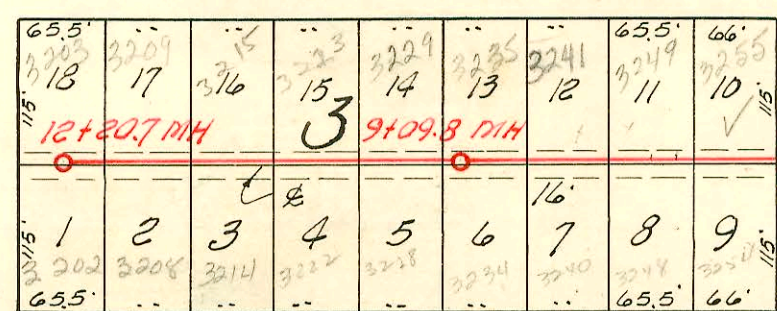 65.5' .. .. .. .. .. .. 65.5' 66'
3203 3209 3215 3223 3229 3235 3241 3249 3255
115' 18 17 16 15 14 13 12 11 10 115'
12+20.7 MH 3 9+09.8 MH
16'
115' 1 2 3 4 5 6 7 8 9 115'
3202 3208 3214 3222 3228 3234 3240 3248
65.5' .. .. .. .. .. .. 65.5' 66'